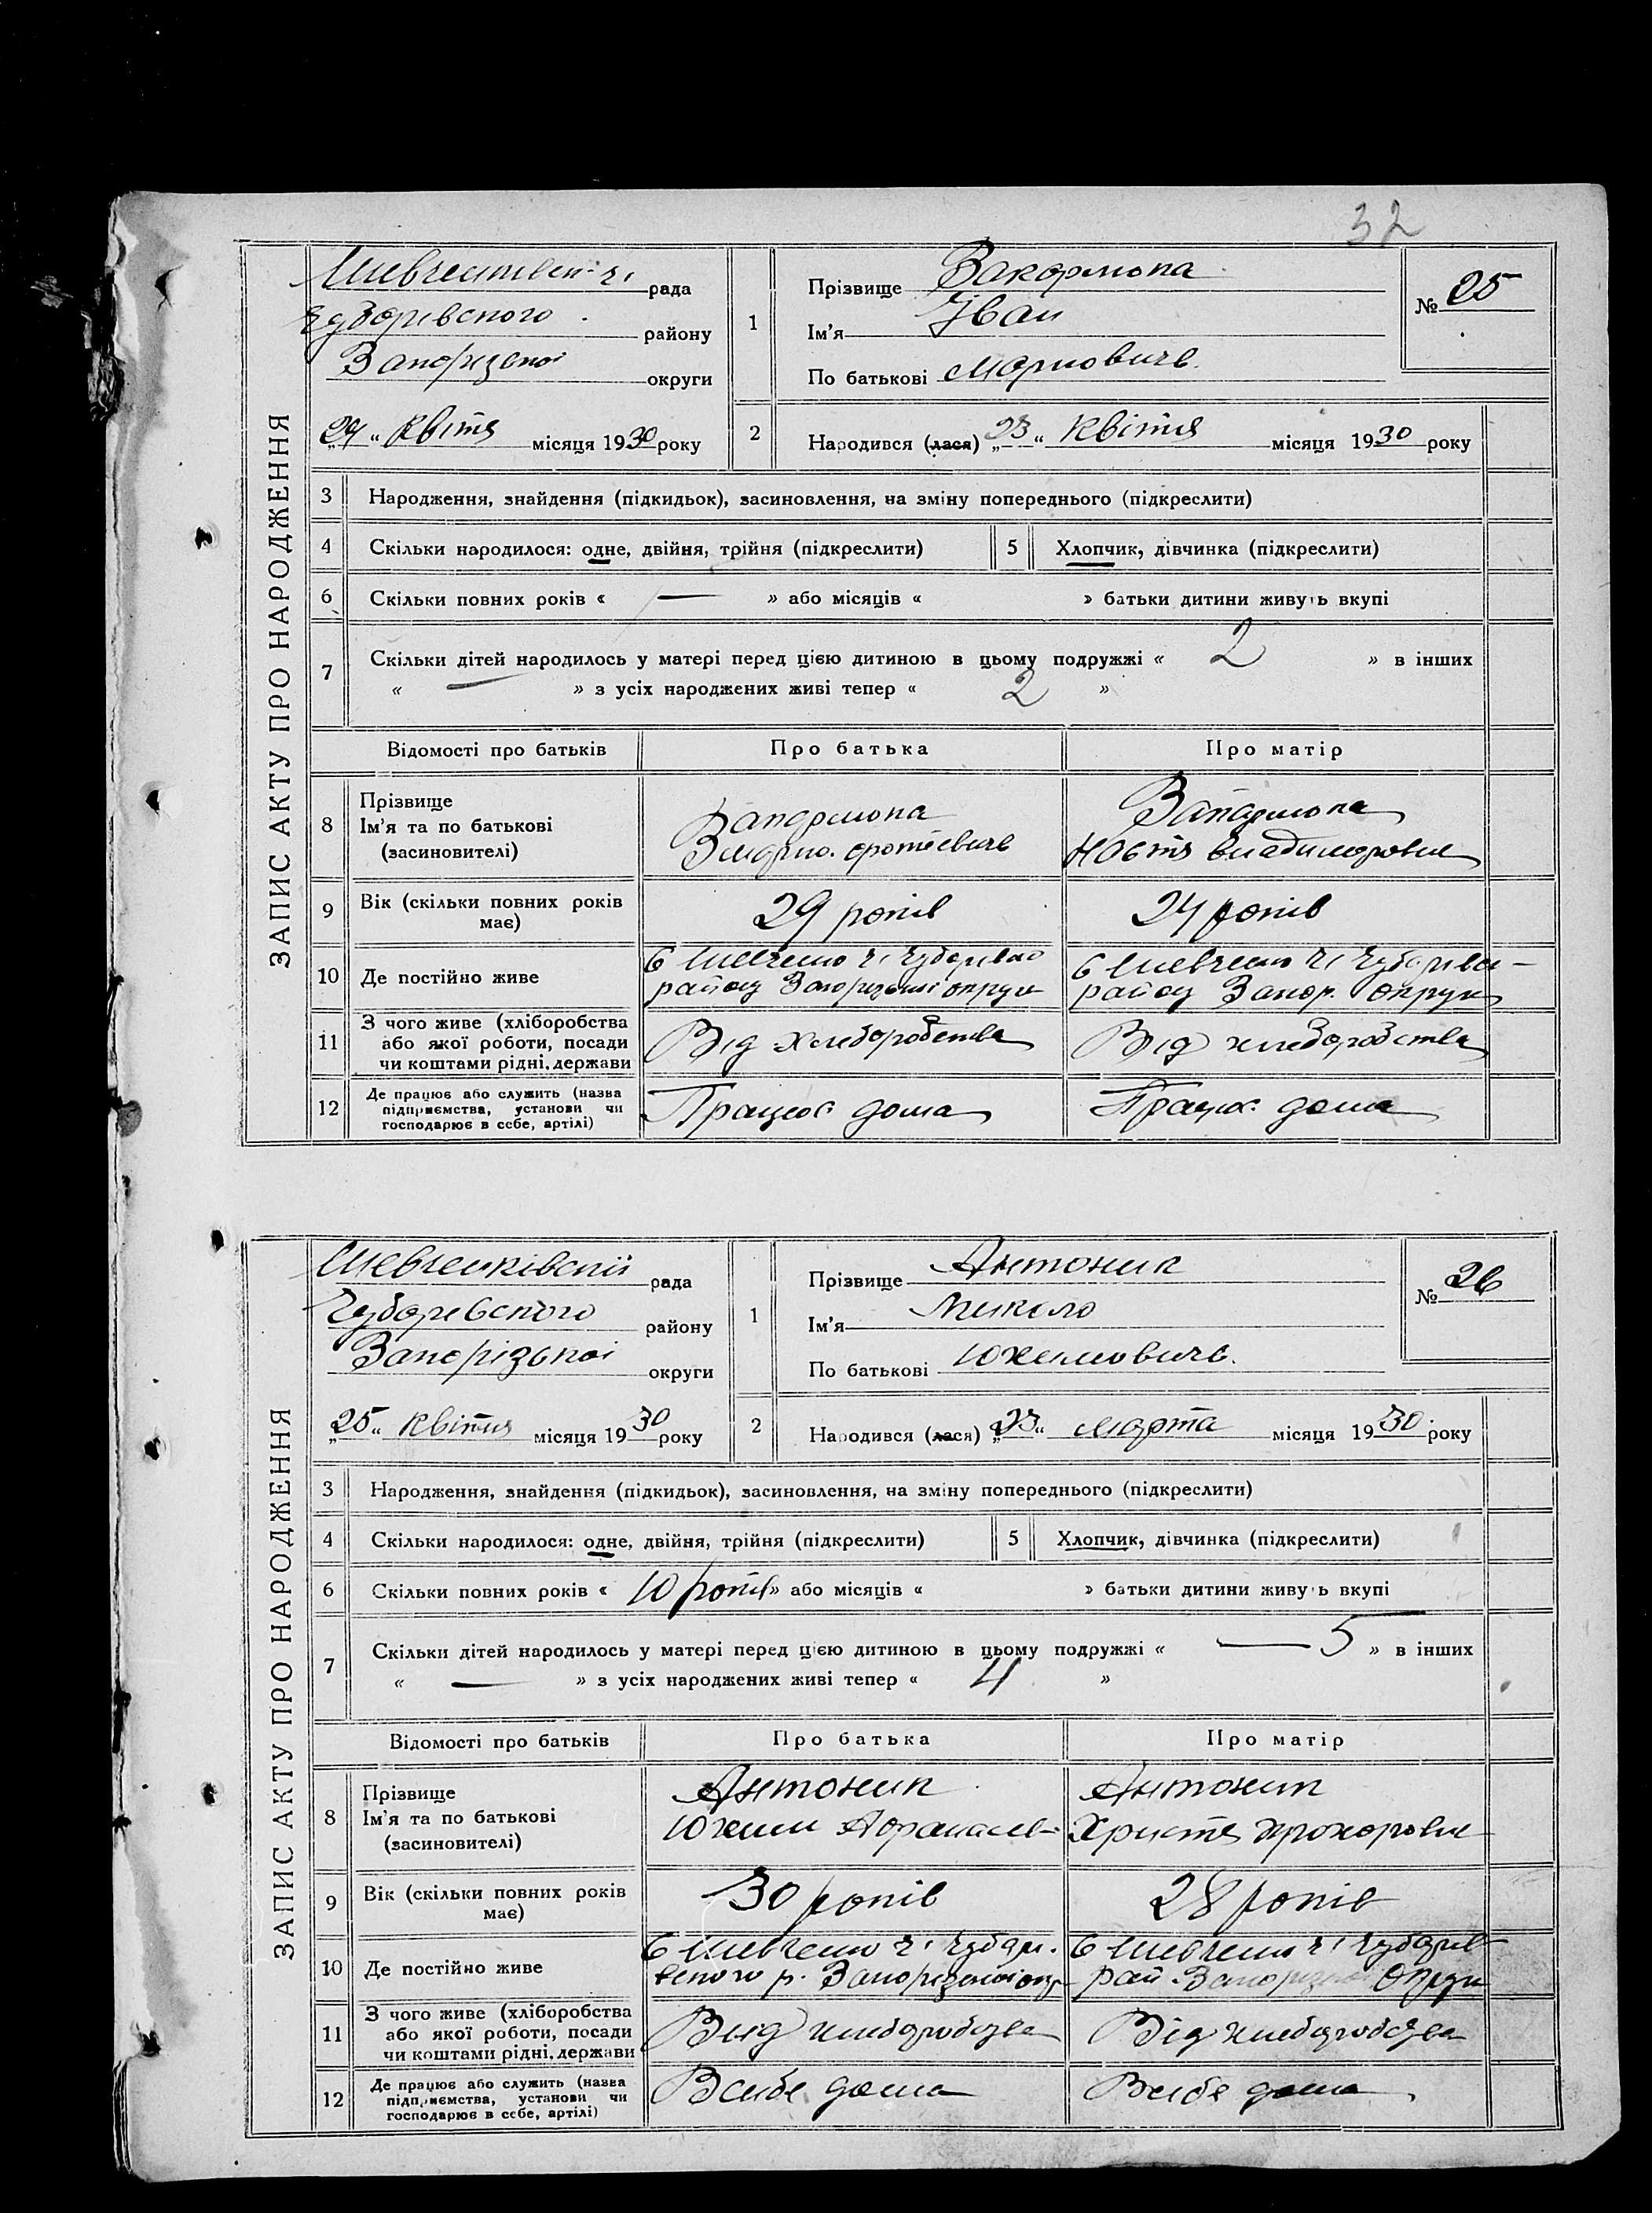 32
ЗАПИС АКТУ ПРО НАРОДЖЕННЯ
рада
Чубарівського району
Запорізької округи
„24“ квітня місяця 1930 року
1
Прізвище Закормопа
Ім’я Іван
По батькові Маркович
№ 25
2
Народився (лася) „23“ квітня місяця 1930 року
3 Народження, знайдення (підкидьок), засиновлення, на зміну попереднього (підкреслити)
4 Скільки народилося: одне, двійня, трійня (підкреслити)
5 Хлопчик, дівчинка (підкреслити)
6 Скільки повних років « — » або місяців « » батьки дитини живуть вкупі
7 Скільки дітей народилось у матері перед цією дитиною в цьому подружжі « 2 » в інших
« — » з усіх народжених живі тепер « 2 »
Відомості про батьків
Про батька
Про матір
8
Прізвище
Ім’я та по батькові
(засиновителі)
Владимировна
9
Вік (скільки повних років
має)
29 років
24 років
10 Де постійно живе
району Запорізької округи
району Запор. округи
11
З чого живе (хліборобства
або якої роботи, посади
чи коштами рідні, держави
Від хліборобства
Від хліборобства
12
Де працює або служить (назва
підприємства, установи чи
господарює в себе, артілі)
Працює дома
Працює дома
ЗАПИС АКТУ ПРО НАРОДЖЕННЯ
Шевченківській рада
Чубарівського району
Запорізької округи
„25“ квітня місяця 1930 року
1
Прізвище Антоник
Ім’я Микола
По батькові Юхимовичь.
№ 26
2
Народився (лася) „23“ марта місяця 1930 року
3 Народження, знайдення (підкидьок), засиновлення, на зміну попереднього (підкреслити)
4 Скільки народилося: одне, двійня, трійня (підкреслити)
5 Хлопчик, дівчинка (підкреслити)
6 Скільки повних років « 10 років » або місяців « » батьки дитини живуть вкупі
7 Скільки дітей народилось у матері перед цією дитиною в цьому подружжі « — 5 » в інших
« — » з усіх народжених живі тепер « 4 »
Відомості про батьків
Про батька
Про матір
8
Прізвище
Ім’я та по батькові
(засиновителі)
Антоник
Юхим Афанасев-
Антоник
Христя Прохоровна
9
Вік (скільки повних років
має)
30 років
28 років
10 Де постійно живе
11
З чого живе (хліборобства
або якої роботи, посади
чи коштами рідні, держави
Від хлібороб
Від хлібороб
12
Де працює або служить (назва
підприємства, установи чи
господарює в себе, артілі)
В себе дома
В себе дома